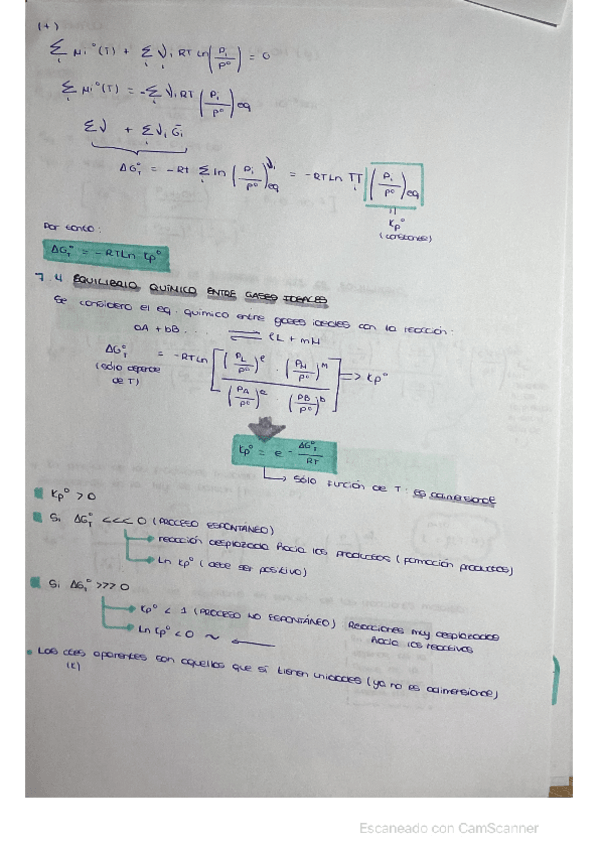 (+)
Σ μi°(T) + Σ νi RT Ln(Pi/P°) = 0
Σ μi°(T) = -Σ νi RT (Pi/P°)eq
Σν + Σνi Ḡi
ΔG°T = -Rt Σ ln (Pi/P°)^νi eq = -RTLn TT (Pi/P°)eq
Kp°
(constante)
Por tanto:
ΔG°T = -RTLn Kp°
7.4 EQUILIBRIO QUÍMICO ENTRE GASES IDEALES
Se considera el eq. químico entre gases ideales con la reacción:
aA + bB... ⇌ eL + mM
ΔG°T = -RTLn [(PL/P°)^e · (PM/P°)^m / (PA/P°)^a · (PB/P°)^b] => Kp°
(sólo depende
de T)
Kp° = e - ΔG°T/RT
Sólo función de T: es adimensional
Kp° > 0
Si ΔG°T <<< 0 (PROCESO ESPONTÁNEO)
reacción desplazada hacia los productos (formación productos)
Ln Kp° (debe ser positivo)
Si ΔG°T >>> 0
Kp° < 1 (PROCESO NO ESPONTÁNEO) Reacciones muy desplazadas
hacia los reactivos
Ln Kp° < 0 ~ ←
Las ctes aparentes son aquellas que sí tienen unidades (ya no es adimensional)
Escaneado con CamScanner